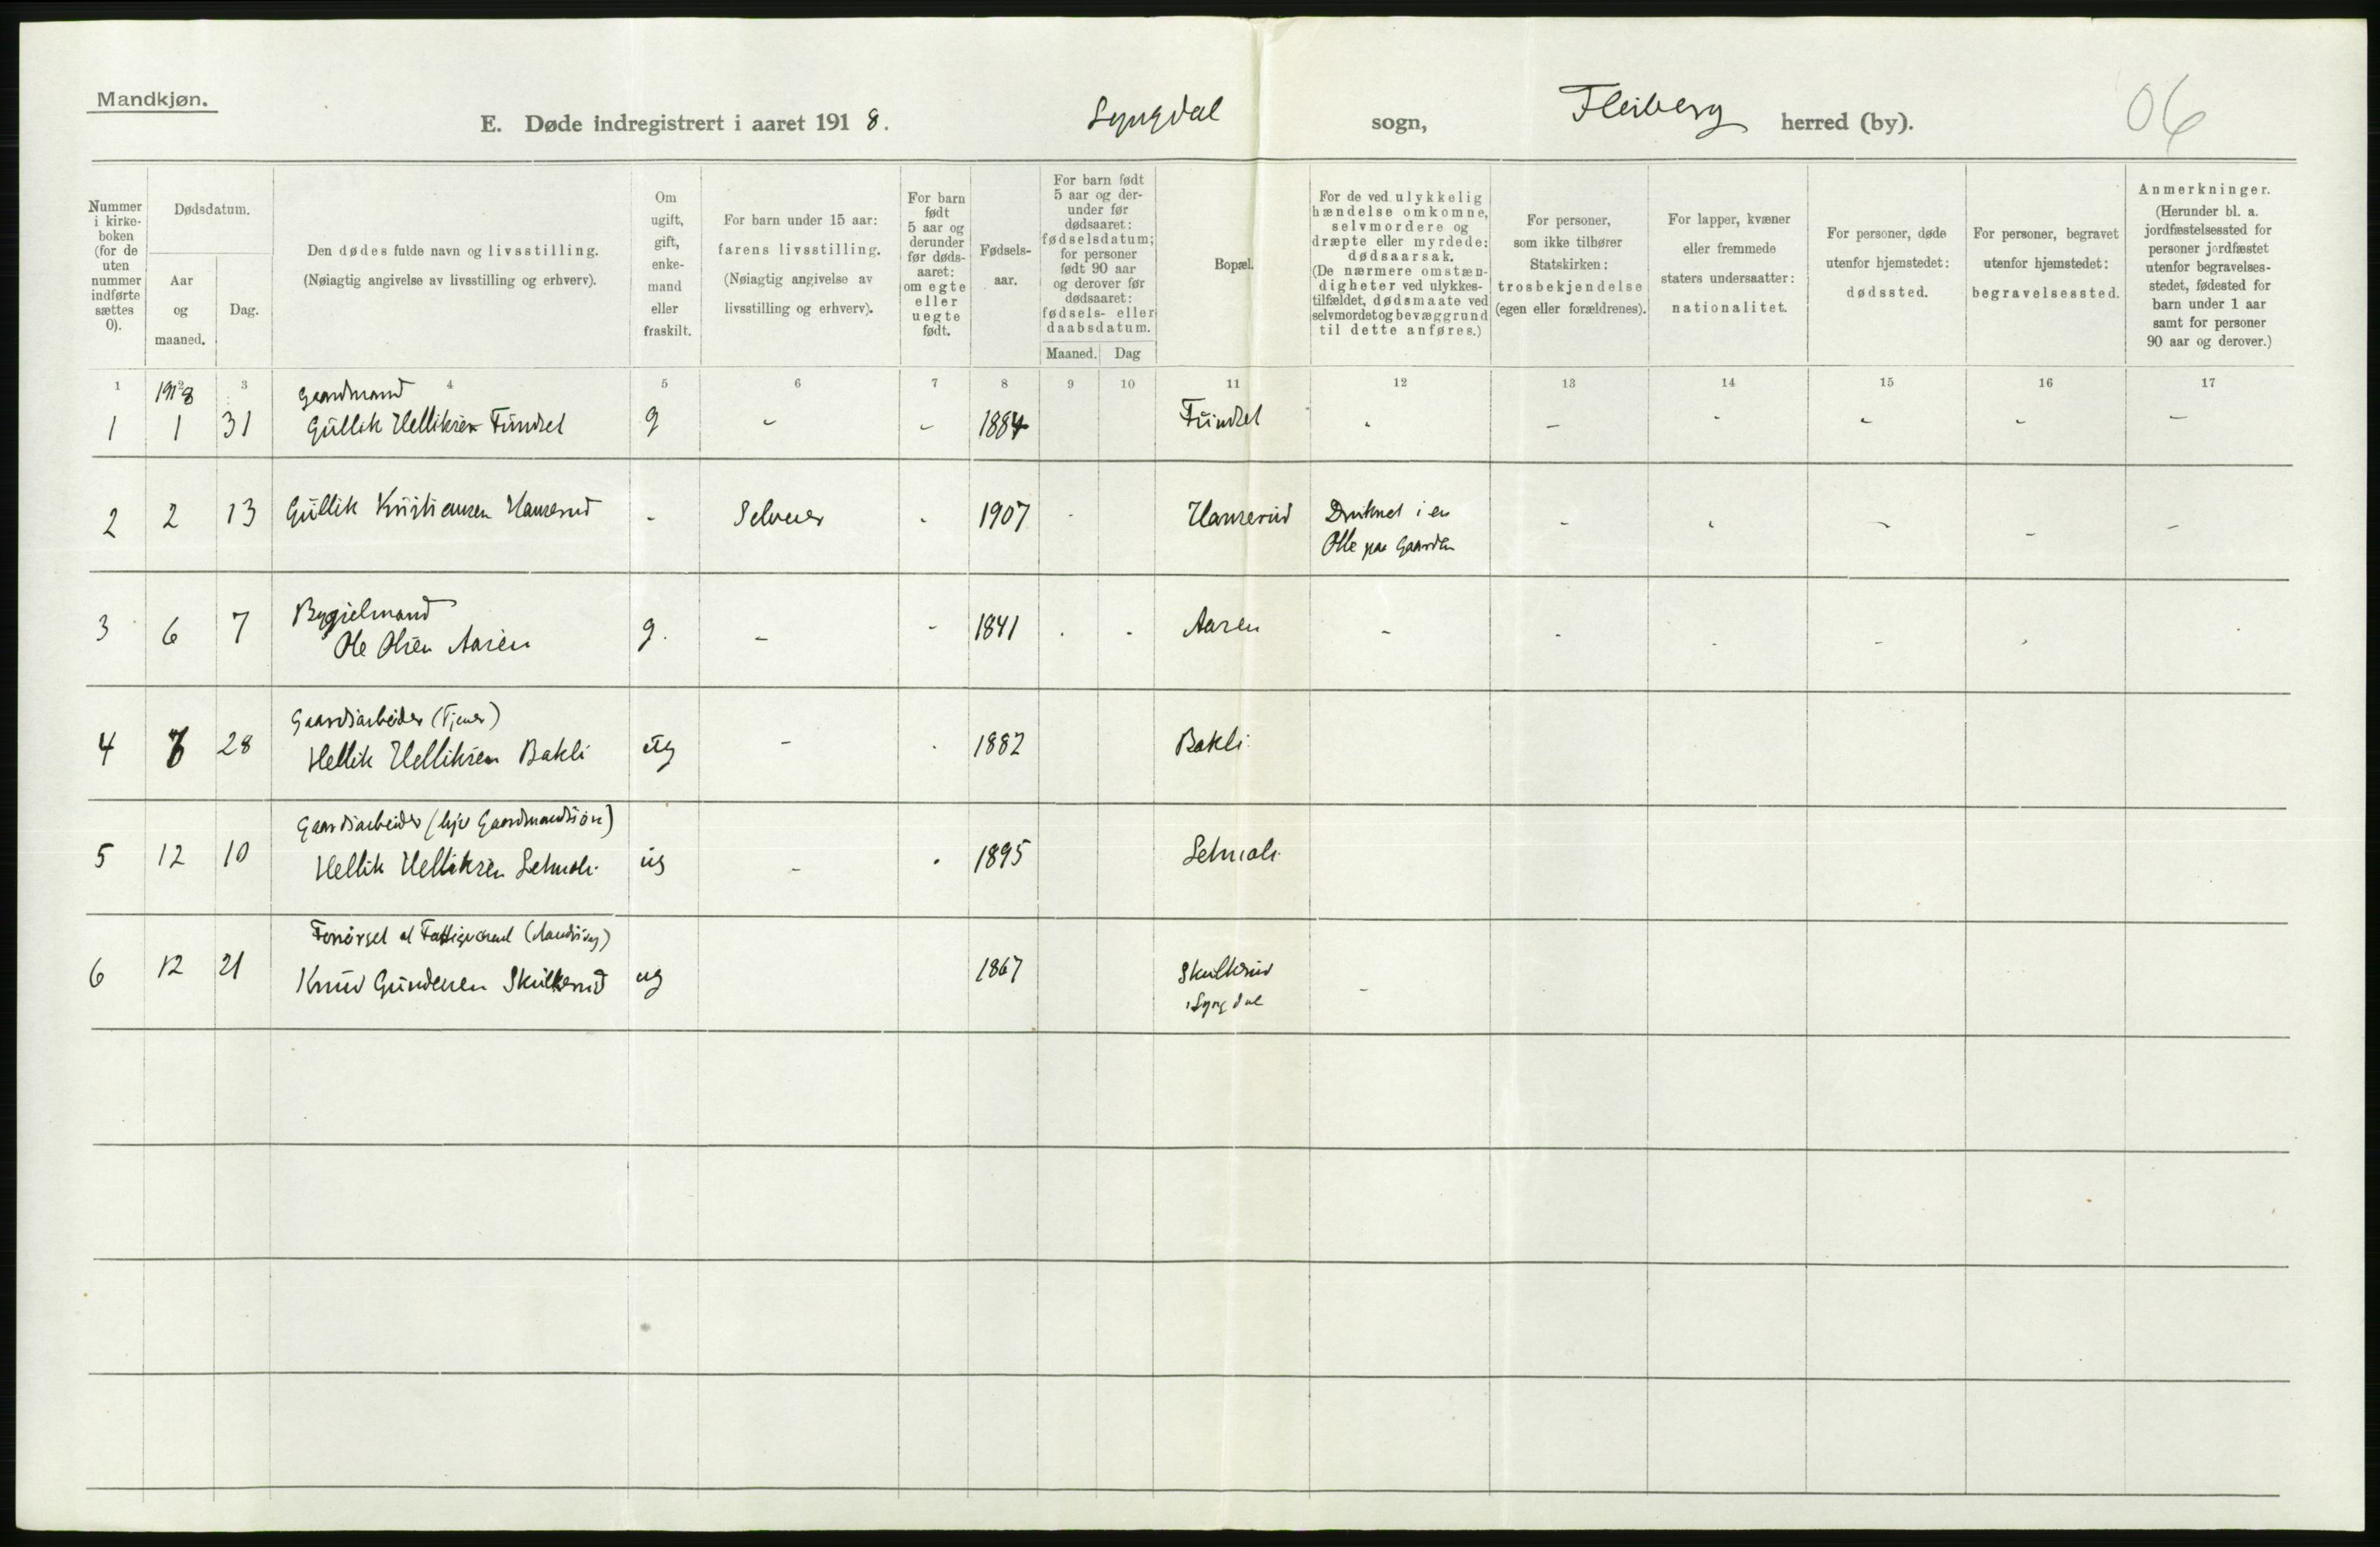 Mandkjøn.
E. Døde indregistrert i aaret 1918.
Lyngdal sogn,
Fleiberg herred (by).
06
Nummer i kirke-boken (for de uten nummer indførte sættes 0).
Dødsdatum.
Aar og maaned.
Dag.
Den dødes fulde navn og livsstilling.
(Nøiagtig angivelse av livsstilling og erhverv).
Om ugift, gift, enke-mand eller fraskilt.
For barn under 15 aar: farens livsstilling. (Nøiagtig angivelse av livsstilling og erhverv).
For barn født 5 aar og derunder før døds-aaret: om egte eller uegte født.
Fødsels-aar.
For barn født 5 aar og der-under før dødsaaret: fødselsdatum; for personer født 90 aar og derover før dødsaaret: fødsels- eller daabsdatum.
Maaned. Dag
Bopæl.
For de ved ulykkelig hændelse omkomne, selvmordere og dræpte eller myrdede: dødsaarsak. (De nærmere omstæn-digheter ved ulykkes-tilfældet, dødsmaate ved selvmordet og bevæggrund til dette anføres.)
For personer, som ikke tilhører Statskirken: trosbekjendelse (egen eller forældrenes).
For lapper, kvæner eller fremmede staters undersaatter: nationalitet.
For personer, døde utenfor hjemstedet: dødssted.
For personer, begravet utenfor hjemstedet: begravelsessted.
Anmerkninger. (Herunder bl. a. jordfæstelsessted for personer jordfæstet utenfor begravelses-stedet, fødested for barn under 1 aar samt for personer 90 aar og derover.)
1 2 3 4 5 6 7 8 9 10 11 12 13 14 15 16 17
1918 Gaardmand
1 1 31 Gullik Helliksen Fundset g - - 1884 Fundset - - - - - -
2 2 13 Gullik Kristiansen Hanserud - Selveier - 1907 - Hanserud Druknet i en - - - - -
Olle paa Gaarden
Bygselmand
3 6 7 Ole Olsen Aasen g. - - 1841 - - Aasen - - - - -
Gaardsarbeider (Tjener)
4 7 28 Hellik Helliksen Bakli ug - - 1882 Bakli
Gaardsarbeider ( Gaardmandssøn)
5 12 10 Hellik Helliksen ug - - 1895
Forsørget af Fattigvæsenet
6 12 21 Knud Gundersen Skulkerud ug 1867 Skulkerud -
i Lyngdal